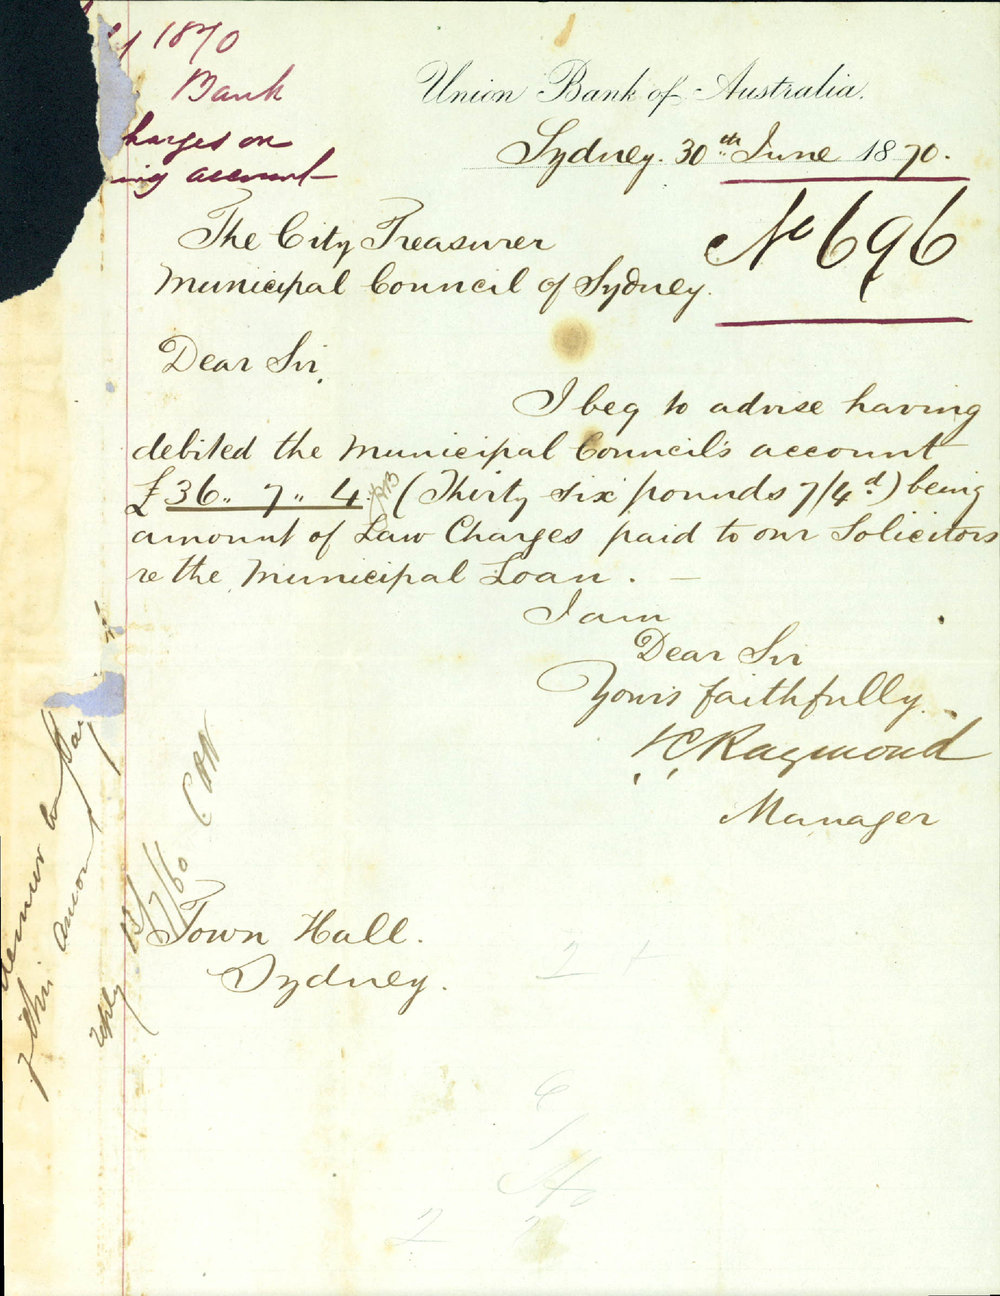 1870
Bank
harges on
ing account
Union Bank of Australia.
Sydney. 30th June 1870.
No 696
The City Treasurer
Municipal Council of Sydney.
Dear Sir,
I beg to advise having
debited the Municipal Council's account
£36.. 7.. 4. (Thirty six pounds 7/4d) being
amount of Law Charges paid to our Solicitors
re the Municipal Loan. —
I am
Dear Sir
Yours faithfully.
Raymond
Manager
Town Hall.
Sydney.